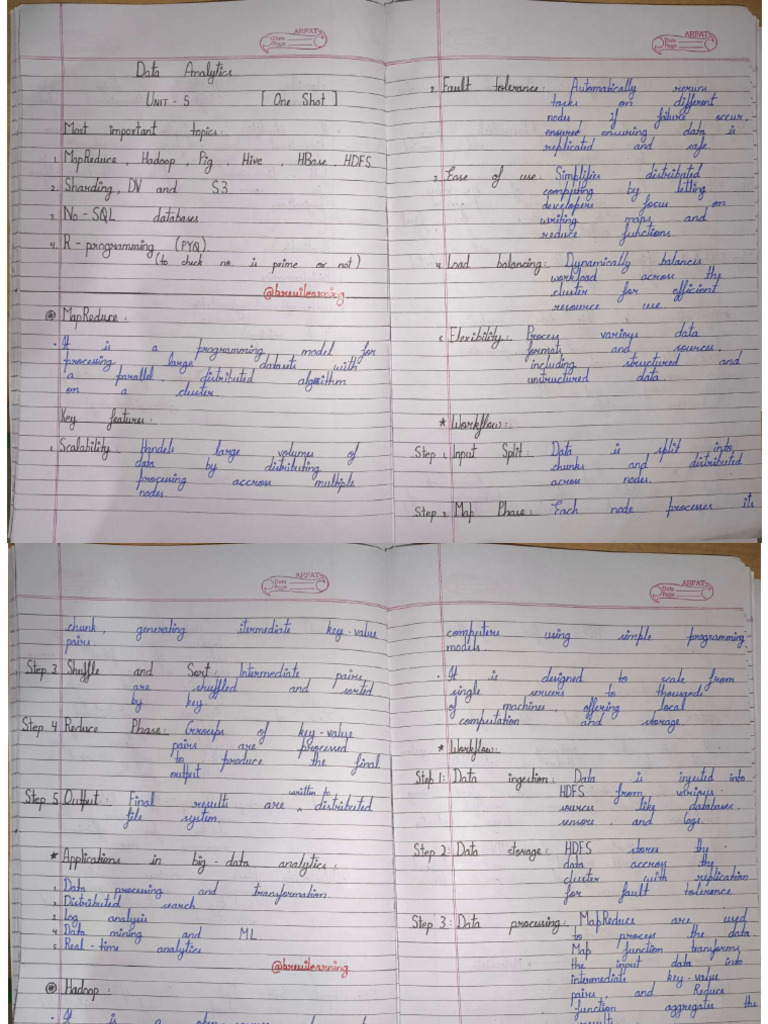 ARFAT
Date
Page
Data Analytics
UNIT - 5 [One Shot]
Most important topics:
1. MapReduce, Hadoop, Pig, Hive, HBase, HDFS
2. Sharding, DV and S3
3. No-SQL databases
4. R-programming (PYQ)
(to check no. is prime or not)
@breuilearning
MapReduce:
It is a programming model for
processing large datasets with
a parallel, distributed algorithm
on a cluster.
Key features:
1. Scalability: Handels large volumes of
data by distributing
processing accross multiple
nodes.
ARFAT
Date
Page
2. Fault tolerance: Automatically reruns
tasks on different
nodes if failure occur,
ensured ensuring data is
replicated and safe.
3. Ease of use: Simplifies distributed
computing by letting
developers focus on
writing maps and
reduce functions.
4. Load balancing: Dynamically balances
workload across the
cluster for efficient
resource use.
5. Flexibility: Process various data
formats and sources.
including structured and
unstructured data.
* Workflow:
Step 1. Input Split: Data is split into
chunks and distributed
across nodes.
Step 2. Map Phase: Each node processes its
ARFAT
Date
Page
chunk, generating itermediate key-value
pairs.
Step 3 Shuffle and Sort: Intermediate pairs
are shuffled and sorted
by key.
Step 4 Reduce Phase: Groups of key-value
pairs are processed
to produce the final
output
Step 5 Output: Final results are written to distributed
file system.
* Applications in big-data analytics:
1. Data processing and transformation.
2. Distributed search
3. Log analysis
4. Data mining and ML
5. Real-time analytics
@breuilearning
Hadoop:
It is a open
ARFAT
Date
Page
computers using simple programming
models.
It is designed to scale from
single servers to thousands
of machines, offering local
computation and storage.
* Workflow:
Step 1: Data ingestion: Data is injested into
HDFS from various
sources like databases.
sensors, and logs.
Step 2: Data storage: HDFS stores the
data accross the
cluster with replication
for fault tolerance
Step 3: Data processing: MapReduce are used
to process the data
Map function transforms
the input data into
intermediate key-value
pairs, and Reduce
function aggregates the
results